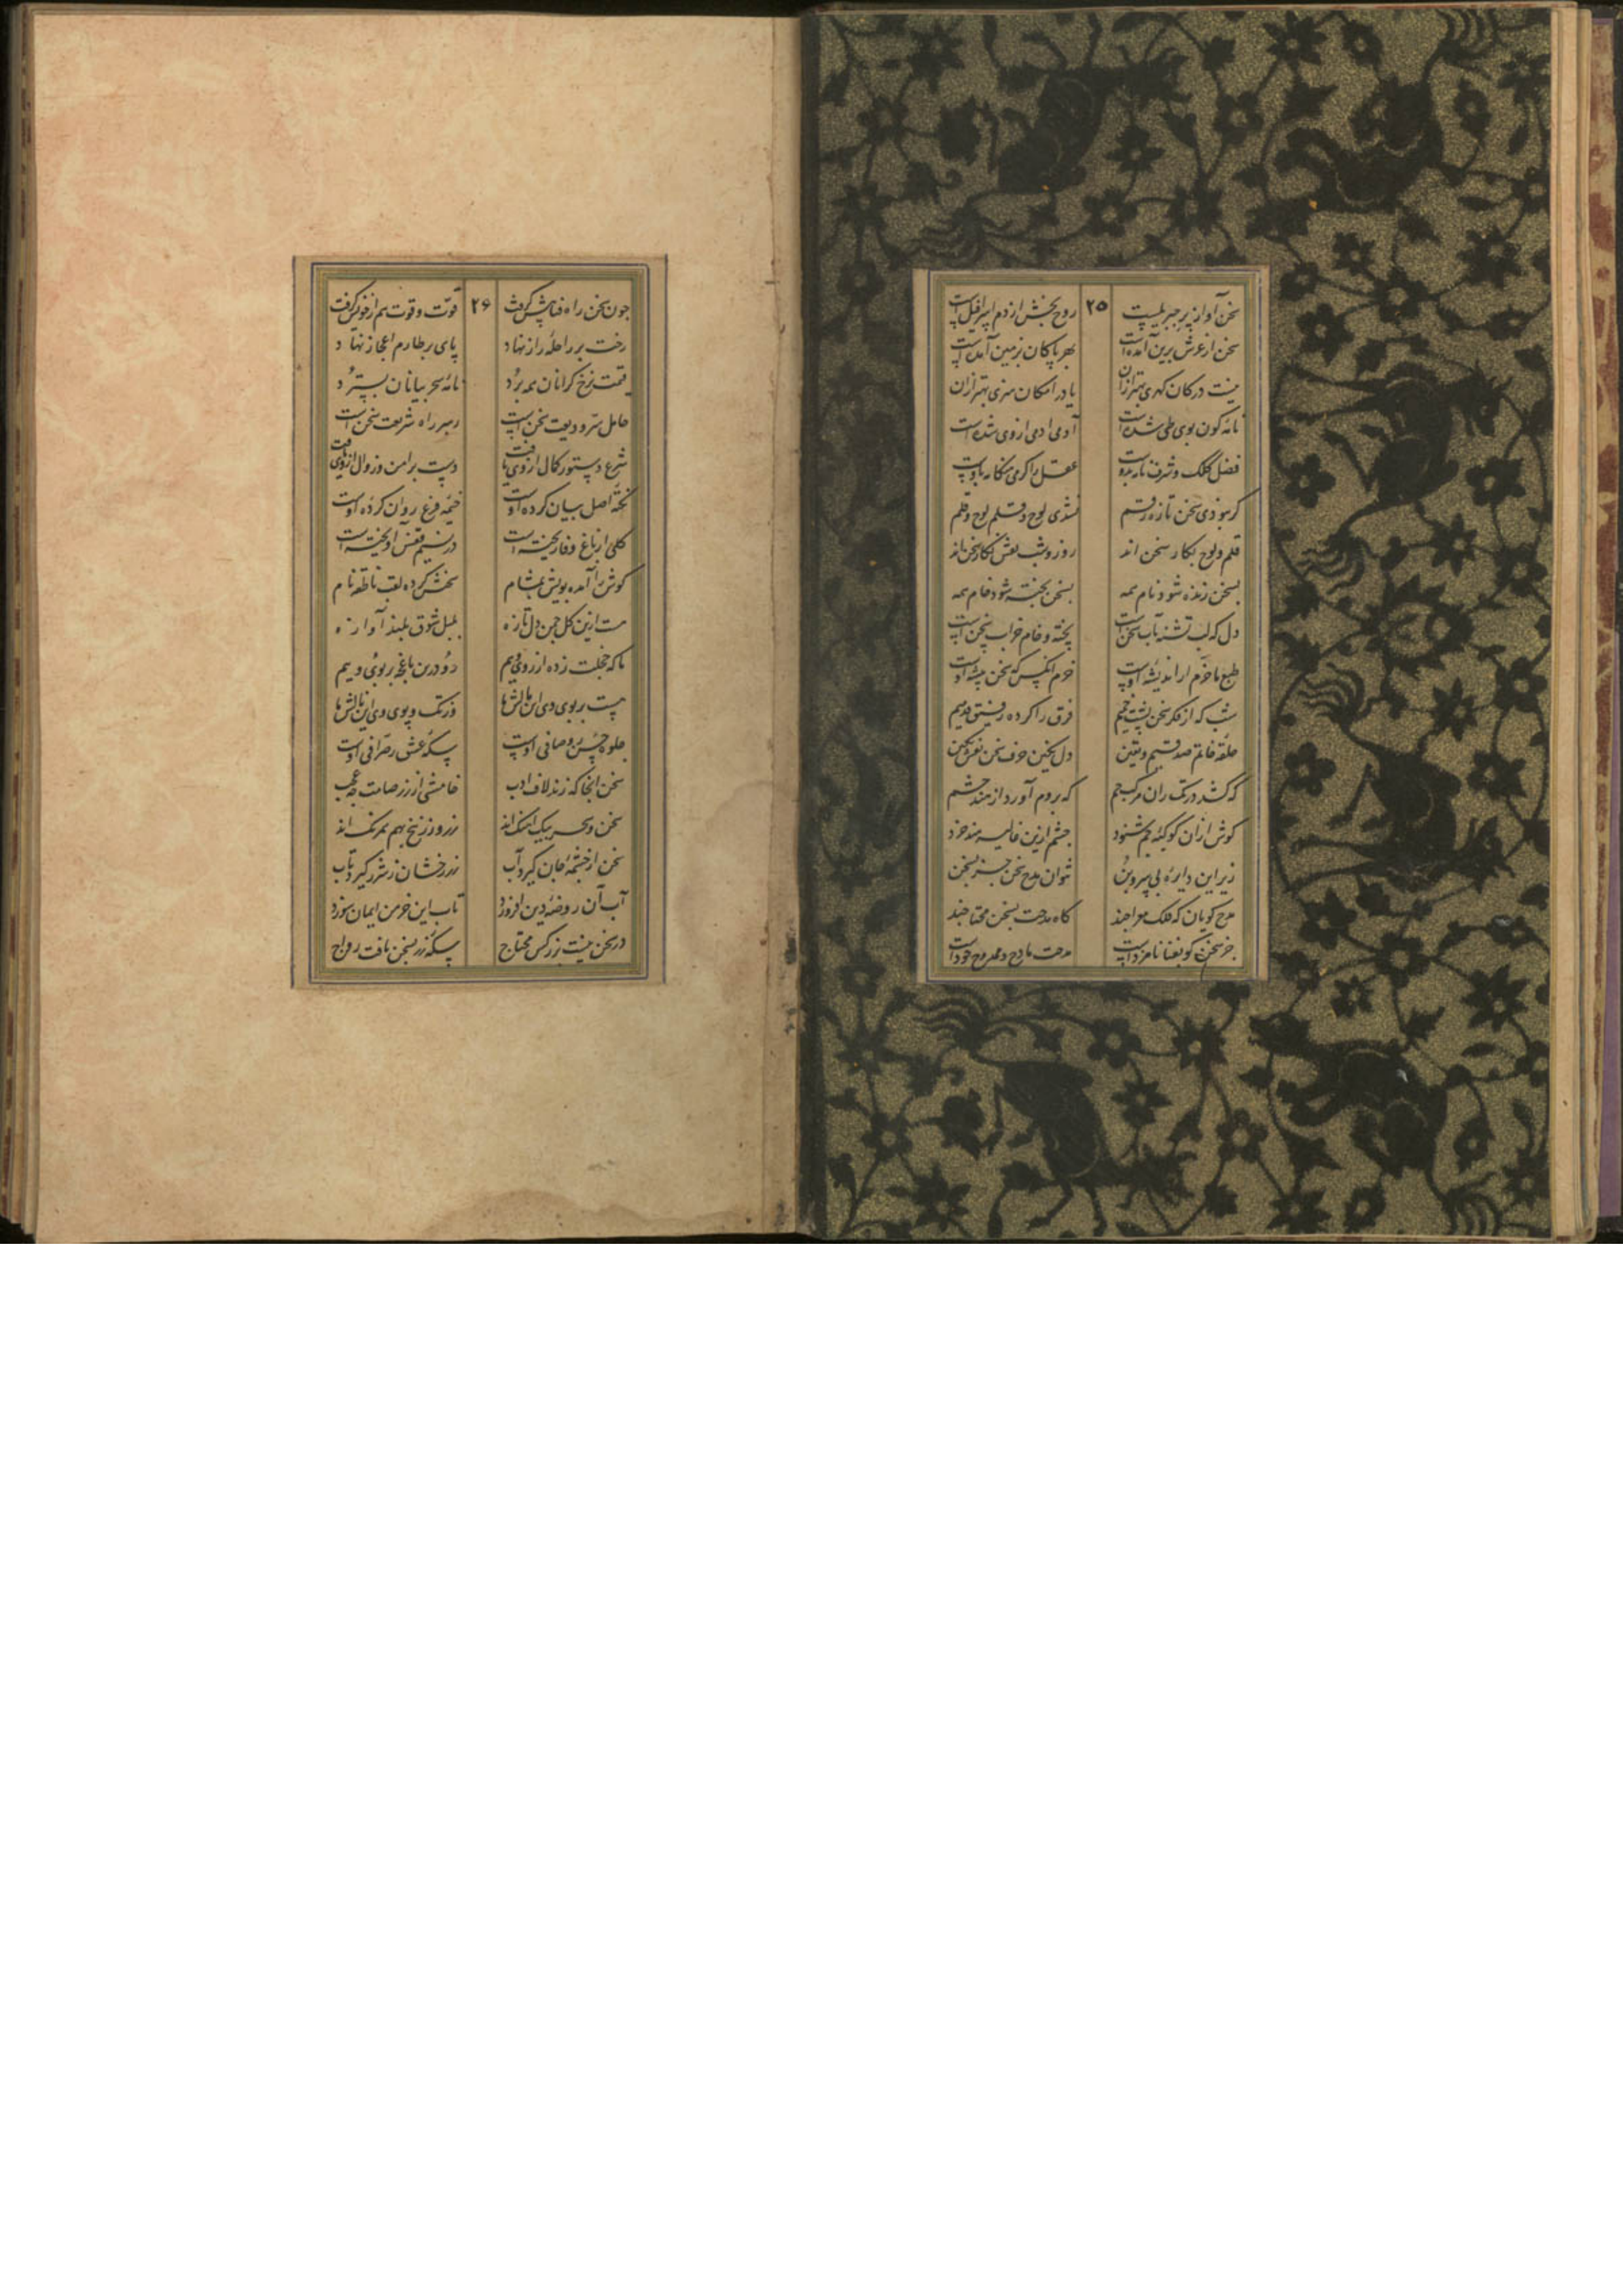 ۲۵
سخن آواز پر جبریلست روح بخش از دم اسرافیل است
سخن از عرش برین آمده است بهر پاکان بزمین آمده است
نیست در کان کهری بهتر ازان یا در امکان هنری بهتر ازان
نامه کون بوی طی شده است آدمی ادمی از وی شده است
فضل کلک و شرف نامه بدوست عقل را کرمی هنکامه بدوست
کر نبودی سخن تازه رقم نشدی لوح و قلم لوح و قلم
قلم و لوح بکار سخن اند روز و شب نقش نکار سخن اند
بسخن زنده شود نام همه بسخن پخته شود خام همه
دل که لب تشنه تاب سخن است پخته و خام خراب سخن است
طبع ما خرم از اندیشه اوست خرم انکس که سخن پیشه اوست
شب که از فکر سخن پشت خمیم فرق را کرده رفیق قدمیم
حلقه خاتم صدقیم و یقین دل نکین حرف سخن نقش نکین
که کشد در تک ران مرکب جم که بروم آورد از هند حشم
کوش ازان کوکبه جم شنود چشم ازین غالیه هند خرد
زیر این دایره بی سر و بن نتوان مدح سخن جز بسخن
مدح کویان که فلک معراجند کاه مدحت بسخن محتاجند
جز سخن کو بفنا نامزد است مدحت مادح و ممدوح خود است
۲۶
جون سخن راه فنا پیش کرفت قوت و قوت هم از خویش کرفت
رخت بر راحله راز نهاد پای بر طارم اعجاز نهاد
قیمت نرخ کرانان همه برد نامه سحر بیانان بسترد
حامل سر و دیعت سخن است رهبر راه شریعت سخن است
شرع دستور کمال از وی یافت دست بر امن زوال از وی یافت
نکته اصل بیان کرده اوست خیمه فرع روان کرده اوست
کلی از باغ وفا ریخته است در نسیم نفس آویخته است
کوش را آمده بویش بمشام بخشش کرده لقب ناطقه نام
هست ازین کل چمن دل تازه بلبل شوق بلند آوازه
ما که خجلت زده از روی وییم رو درین باغچه بر بوی وییم
هست بر بوی وی این نالشها وز رنک و بوی وی این بالشها
جلوه حسن ز وصافی اوست سکه عشق ز صرافی اوست
سخن انجا که زند لاف ادب خامشی از زر صامت چه عجب
سخن و سحر بیک اهنک اند زر و زرنیخ بهم همرنک اند
سخن از چشمه جان کیرد آب زر رخشان ز شرر کیرد تاب
آب آن روضه دین افروزد تاب این خرمن ایمان سوزد
در سخن نیست بزر کس محتاج سکه زر بسخن یافت رواج